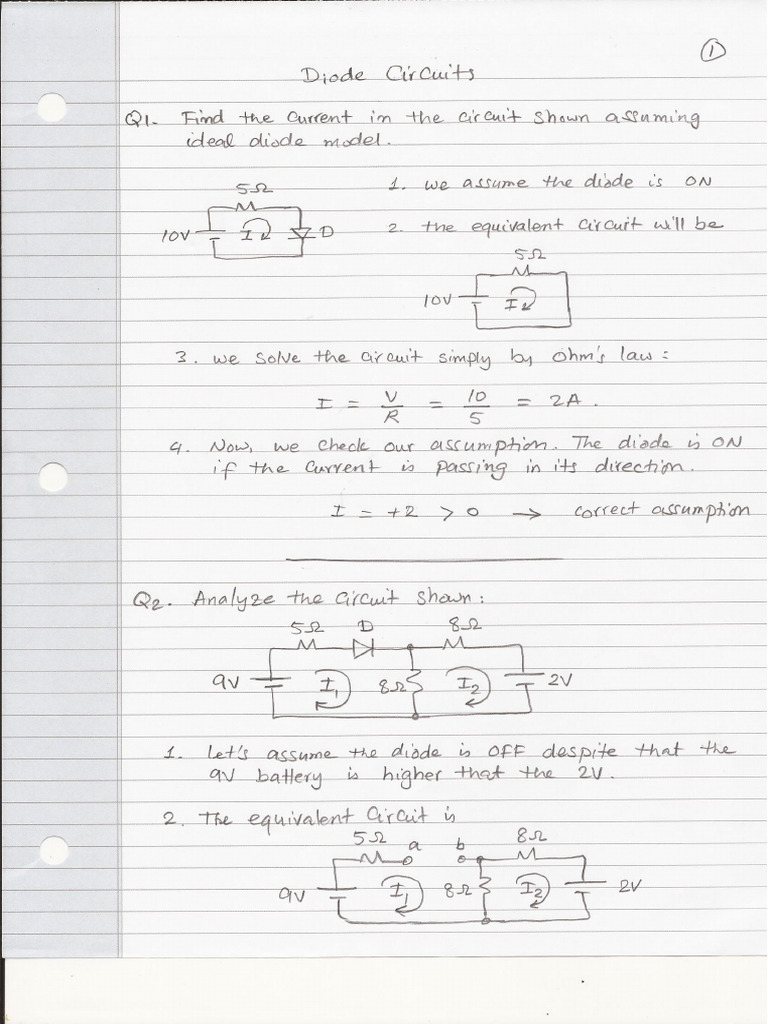 ①
Diode Circuits
Q1. Find the current in the circuit shown assuming
ideal diode model.
5Ω
10V
I
D
1. we assume the diode is ON
2. the equivalent circuit will be
5Ω
10V
I
3. we solve the circuit simply by ohm's law:
I = V/R = 10/5 = 2A.
4. Now, we check our assumption. The diode is ON
if the current is passing in its direction.
I = +2 > 0 → correct assumption
Q2. Analyze the circuit shown:
5Ω D 8Ω
9V I₁ 8Ω I₂ 2V
1. Let's assume the diode is OFF despite that the
9V battery is higher that the 2V.
2. The equivalent circuit is
5Ω a b 8Ω
9V I₁ 8Ω I₂ 2V